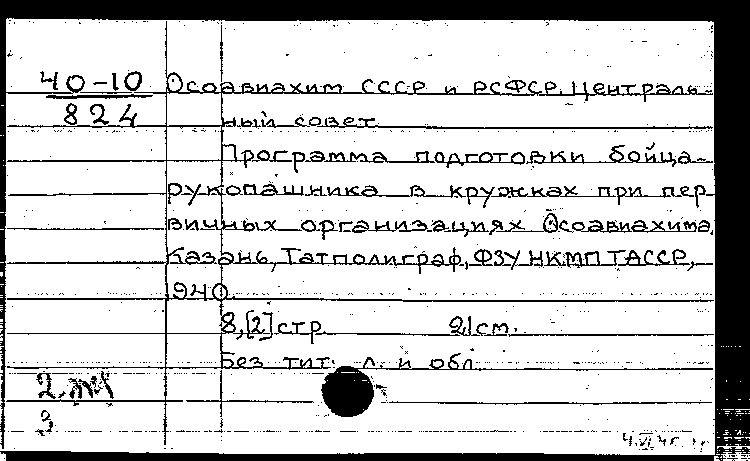 40-10
824
Осоавиахим СССР и РСФСР. Централь-
ный совет
Программа подготовки бойца-
рукопашника в кружках при пер
вичных организациях Осоавиахима.
Казань, Татполиграф, ФЗУ НКМП ТАССР,
1940.
8,[2] стр. 21 см.
Без тит. л. и обл.
2.
3